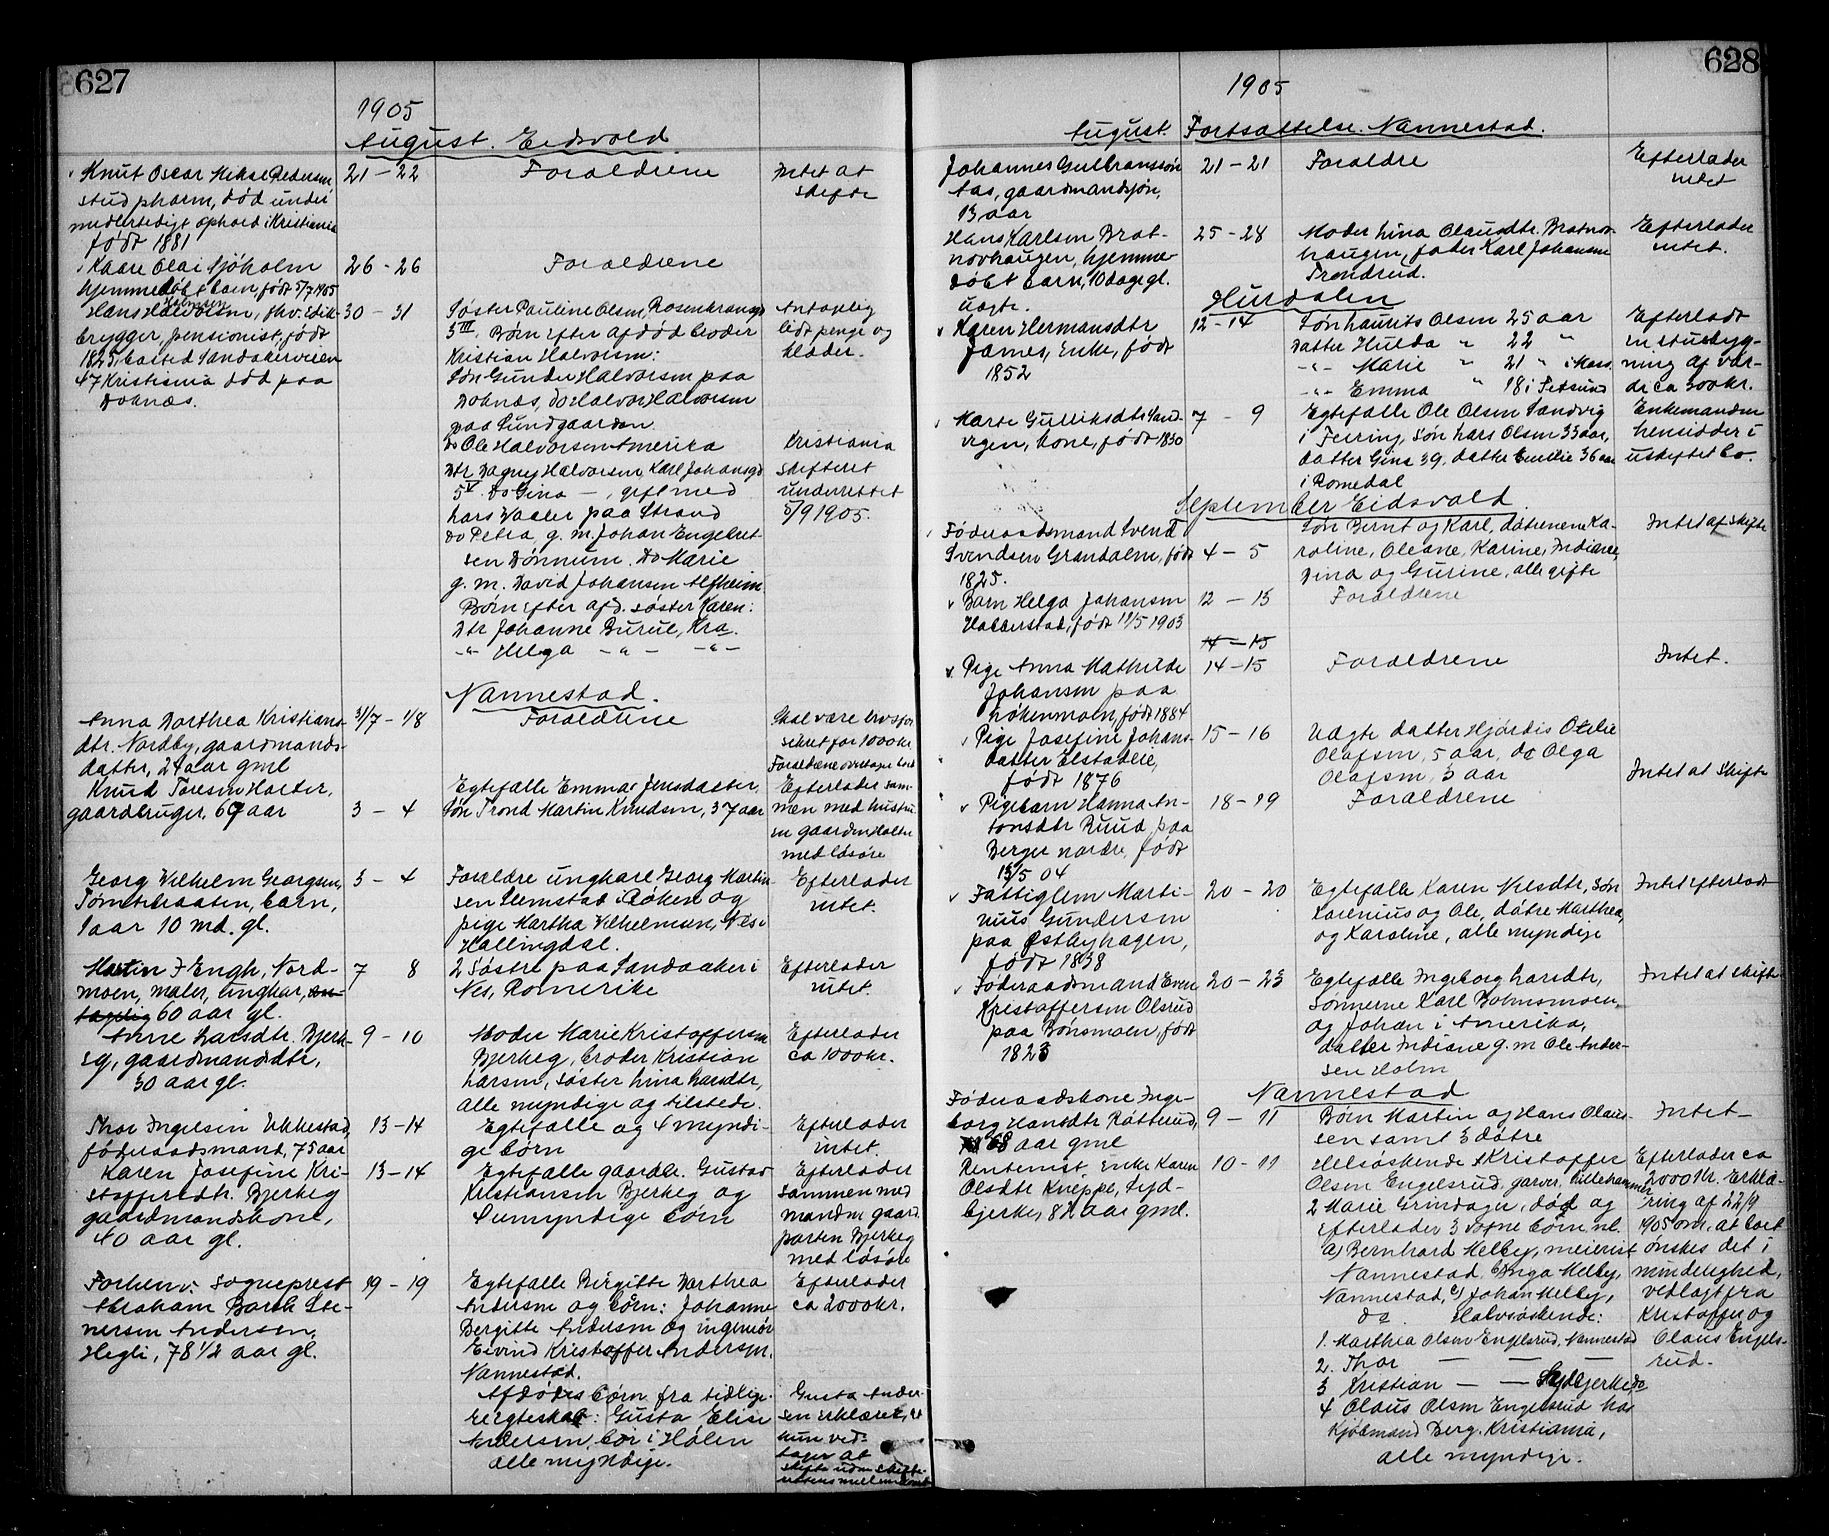 627
1905
August. Eidsvold
Knut Oscar Pedersen
stud pharm, død under
midlertidigt ophold i Kristiania
født 1881
21 – 22
Forældrene
Intet at
skifte
Kaare Olai Sjøholm
hjemmedøbt barn, født 5/7 1905
26 – 26
Forældrene
Hans Halvorsen, fhv.
brygger, pensionist, født
1825, bosted Sandakerveien
47 Kristiania død paa
Doknæs.
30 – 31
Søster Pauline Olsen, Rosenkransgd
5 III. Børn efter afdød broder
Kristian Halvorsen:
Søn Gunder Halvorsen paa
Doknæs, Do Halvor Halvorsen
paa Lundgaarden
Do Ole Halvorsen Amerika
Dtr. Dagny Halvorsen, Karl Johansgd
5 V. Do Gina – , gift med
Lars Vaaler paa Strand
Do Petra, g. m. Johan Engebret-
sen Dønnum. Do Marie
g. m. David Johansen Alfheim
Børn efter afd. søster Karen:
Dtr Johanne Burul, Kra.
-"- Helga -"- -"-
Antagelig
lidt penge og
klæder.
Kristiania
skifteret
underrettet
5/9 1905.
Nannestad.
Anna Dorthea Kristians-
dtr. Nordby, gaardmands-
datter, 24 aar gml
31/7 – 1/8
Forældrene
Skal være livsfor
sikret for 1000 kr
Forældrene overtager boet
Knud Toresen Holter,
gaardbruger, 69 aar
3 – 4
Egtefælle Emma Jensdatter
Søn Trond Martin Knudsen, 37 aar
Efterlader sam-
men med hustru
en gaarden Holter
med løsøre
Georg Vilhelm Georgsen,
Tømteraaten, barn,
1 aar 10 md. gl.
3 – 4
Forældre ungkarl Georg Martin-
sen Slemstad i Røken og
pige Martha Vilhelmsen, Nes i
Hallingdal.
Efterlader
intet.
Martin J Engh, Nord-
moen, maler, ungkar, an-
tagelig 60 aar gl.
7 8
2 Søstre paa Sandaaker i
Nes, Romerike
Efterlader
intet.
Anne Larsdtr. Bjerk-
eg, gaardmandsdtr,
30 aar gl.
9 – 10
Moder Marie Kristoffersen
Bjerkeg, broder Kristian
Larsen, søster Lina Larsdtr,
alle myndige og tilstede.
Efterlader
ca 1000 kr.
Thor Ingelsen Ukkestad,
føderaadsmand, 75 aar
13 – 14
Egtefælle og 4 myndi-
ge børn
Efterlader
intet.
Karen Josefine Kri-
stoffersdtr. Bjerkeg
gaardmandskone,
40 aar gl.
13 – 14
Egtefælle gaardbr. Gustav
Kristiansen Bjerkeg og
umyndige børn
Efterlader
sammen med
manden gaard
parten Bjerkeg
med løsøre
Forhenv. sogneprest
Abraham Borch Ste-
nersen Andersen,
Hegli, 78 1/2 aar gl.
19 – 19
Egtefælle Birgitte Dorthea
Andersen og børn: Johanne
Bergitte Andersen og ingeniør
Eivind Kristoffer Andersen,
Nannestad.
Afdødes børn fra tidlige-
re egteskab: Gusta Elise
Andersen, bor i Hølen
alle myndige.
Efterlader
ca 2000 kr.
Gusta Ander-
sen erklærer, at
hun ved-
tager at
skifte uden skifte-
rettens mellemkomst
628
1905
August. Fortsættelse. Nannestad.
Johannes Gulbranssøn
Aas, gaardmandsøn,
13 aar
21 – 21
Forældre
Efterlader
intet
Hans Karlsen Brat-
novhaugen, hjemme-
døbt barn, 10 dage gl.
uægte.
25 – 28
Moder Lina Olausdtr. Bratnov-
haugen, fader Karl Johansen
Trondrud.
Efterlader
intet.
Hurdalen
Karen Hermansdtr
James, Enke, født
1852
12 – 14
Søn Laurits Olsen 25 aar
Datter Hulda " 22 "
-"- Marie " 21 " i Moss
-"- Emma " 18 i Fetsund
Efterladt
en stuebyg-
ning af vær-
di ca 300 kr.
Marte Gulliksdtr Sand-
vigen, kone, født 1830
7 – 9
Egtefælle Ole Olsen Sandvig
i Feiring, søn Lars Olsen 33 aar,
datter Gina 39, datter Emilie 36 aar
i Romedal
Enkemanden
hensidder i
uskiftet bo.
September Eidsvold
Føderaadsmand Svend
Svendsen Grandalen, født
1825.
4 – 5
Søn Bernt og Karl, døtrenene Ka-
roline, Oleane, Karine, Indiane,
Dina og Gurine, alle gifte
Intet at skifte
Barn Helga Johansen
Habberstad, født 19/5 1903
12 – 13
Forældrene
14 – 15
Pige Anna Mathilde
Johansen paa
Løkenmoen, født 1884
14 – 15
Forældrene
Intet.
Pige Josefine Johans-
datter Elstadeie,
født 1876
15 – 16
Uægte datter Hjørdis Otelie
Olafsen, 5 aar, do Olga
Olafsen, 3 aar
Intet at skifte
Pigebarn Hanna An-
tonsdtr Ruud, paa
Berger nordre, født
13/5 04
18 – 19
Forældrene
Fattiglem Marti-
nius Gundersen
paa Østbyhagen,
født 1838
20 – 20
Egtefælle Karen Nilsdtr, søn
Korenius og Ole, døtre Marthea,
og Karoline, alle myndige
Intet efterladt
Føderaadsmand Even
Kristoffersen Olsrud
paa Bønsmoen, født
1823
20 – 23
Egtefælle Ingeborg Larsdtr,
Sønnerne Karl Bohnsmoen
og Johan i Amerika,
datter Indiane g. m Ole Ander-
sen Holm
Intet at skifte
Nannestad
Føderaadskone Inge-
borg Hansdtr Røtterud,
68 aar gml
9 – 11
Børn Martin og Hans Olaus-
sen samt 3 døtre
Intet
Rentenist, Enke Karen
Olsdtr Kneppe, Syd-
bjerke, 82 aar gml.
10 – 11
Helsøskende 1 Kristoffer
Olsen Engelsrud, garver, Lillehammer
2 Marie Grindager, død og
efterlader 3 vogne børn, nl.
a) Bernhard Kelby, meierist
Nannestad b) Inga Melby,
Nannestad, c) Johan Melby,
do. Halvsøskende:
1. Marthea Olsen Engelsrud, Nannestad
2. Thor — — —
3 Kristian — — Sydbjerke do
4 Olaus Olsen Engelsrud hos
Kjøbmand Berg, Kristiania,
alle myndige.
Efterlader ca
2000 kr. Erklæ-
ring af 22/9
1905 om, at boet
ønskes delt i
mindelighed,
vedlagt fra
Kristoffer og
Olaus Engels-
rud.